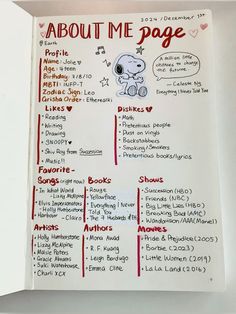 2024 / December
ABOUT ME page
Earth
Profile
Name: Jolie
Age: 4teen
Birthday: 7/8/10
MBTI: INFP-T
Zodiac Sign: Leo
Grisha Order: Etherealki
"A million little
chances to change
the future."
- Celeste Ng
Everything I Never Told You
Likes
• Reading
• Writing
• Drawing
• SNOOPY
• Shiv Roy from Succession
• Music!!
Dislikes
• Math
• Pretentious people
• Dust on vinyls
• Backstabbers
• Smoking / Smokers
• Pretentious books/lyrics
Favorite-
Songs (right now)
• In What World
- Lizzy McAlpine
• Elvis Impersonators
- Holly Humberstone
• Harbour - Clairo
Books
• Rouge
• Yellowface
• Everything I Never
Told You
• The 7 Husbands of
Shows
• Succession (HBO)
• Friends (NBC)
• Big Little Lies (HBO)
• Breaking Bad (AMC)
• WandaVision/AAA (Marvel)
Artists
• Holly Humberstone
• Lizzy McAlpine
• Maisie Peters
• Gracie Abrams
• Suki Waterhouse
• Charli XCX
Authors
• Mona Awad
• R. F. Kuang
• Leigh Bardugo
• Emma Cline
Movies
• Pride & Prejudice (2005)
• Barbie (2023)
• Little Women (2019)
• La La Land (2016)